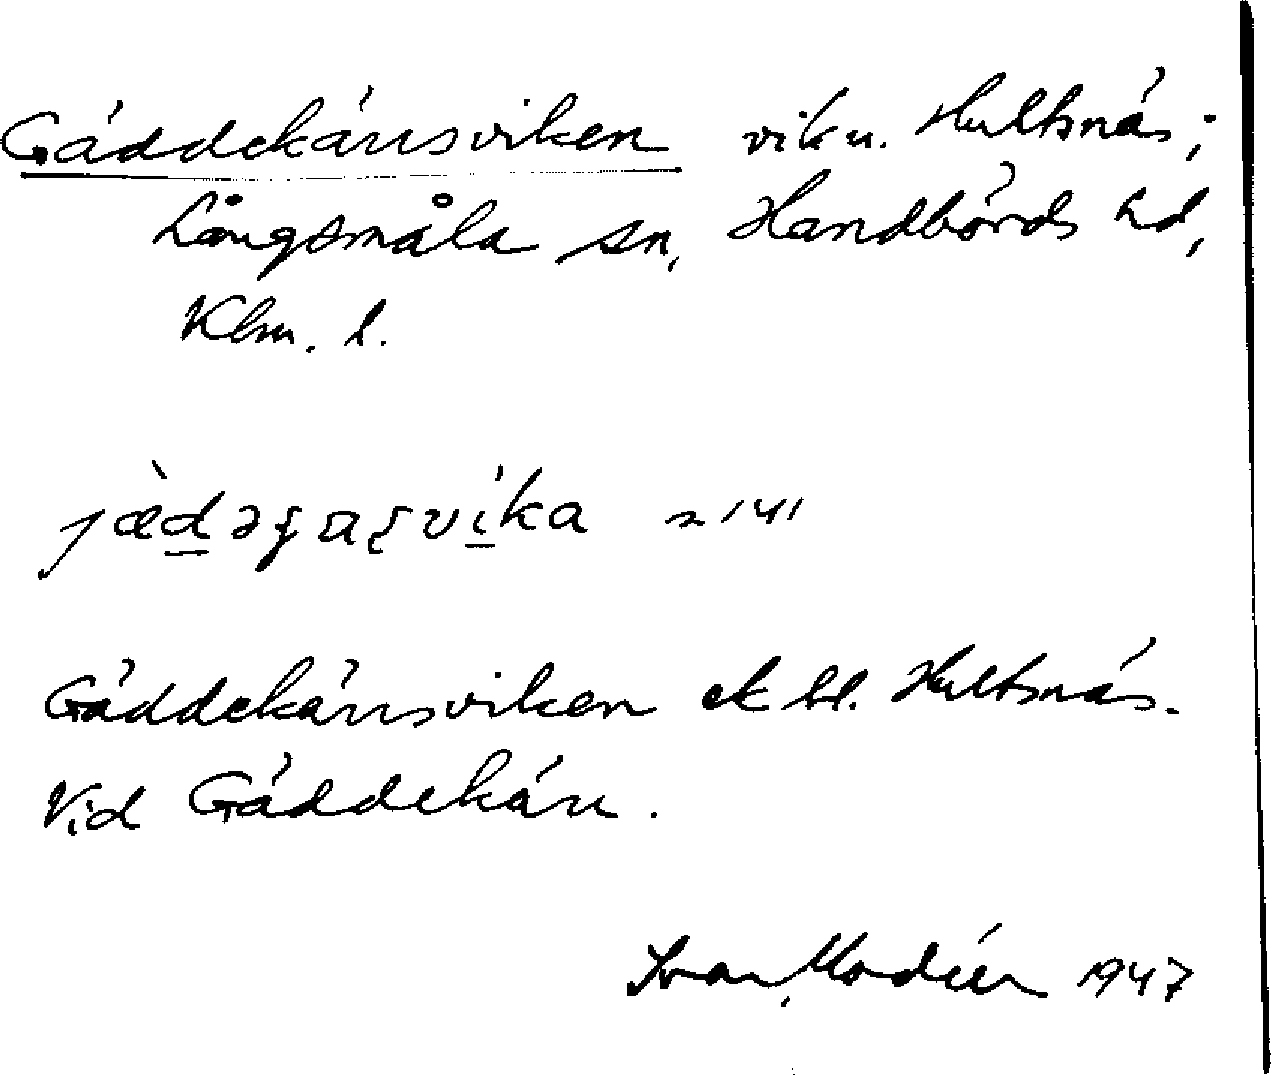 Gäddekärrsviken vik u. Hultsnäs;
Långsmåla sn, Handbörds hd,
Klm. l.
jæ̀dəɟaʂvíka
Gäddekärrsviken ek bl. Hultsnäs.
Vid Gäddekärr.
Ivar Modéer 1947